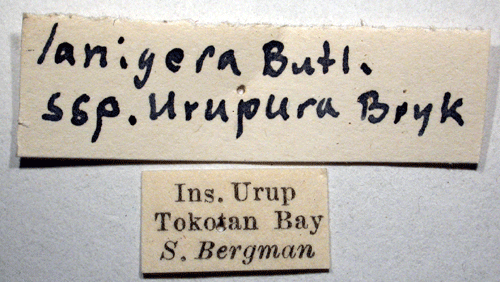 lanigera Butl.
ssp. Urupura Bryk
Ins. Urup
Tokotan Bay
S. Bergman